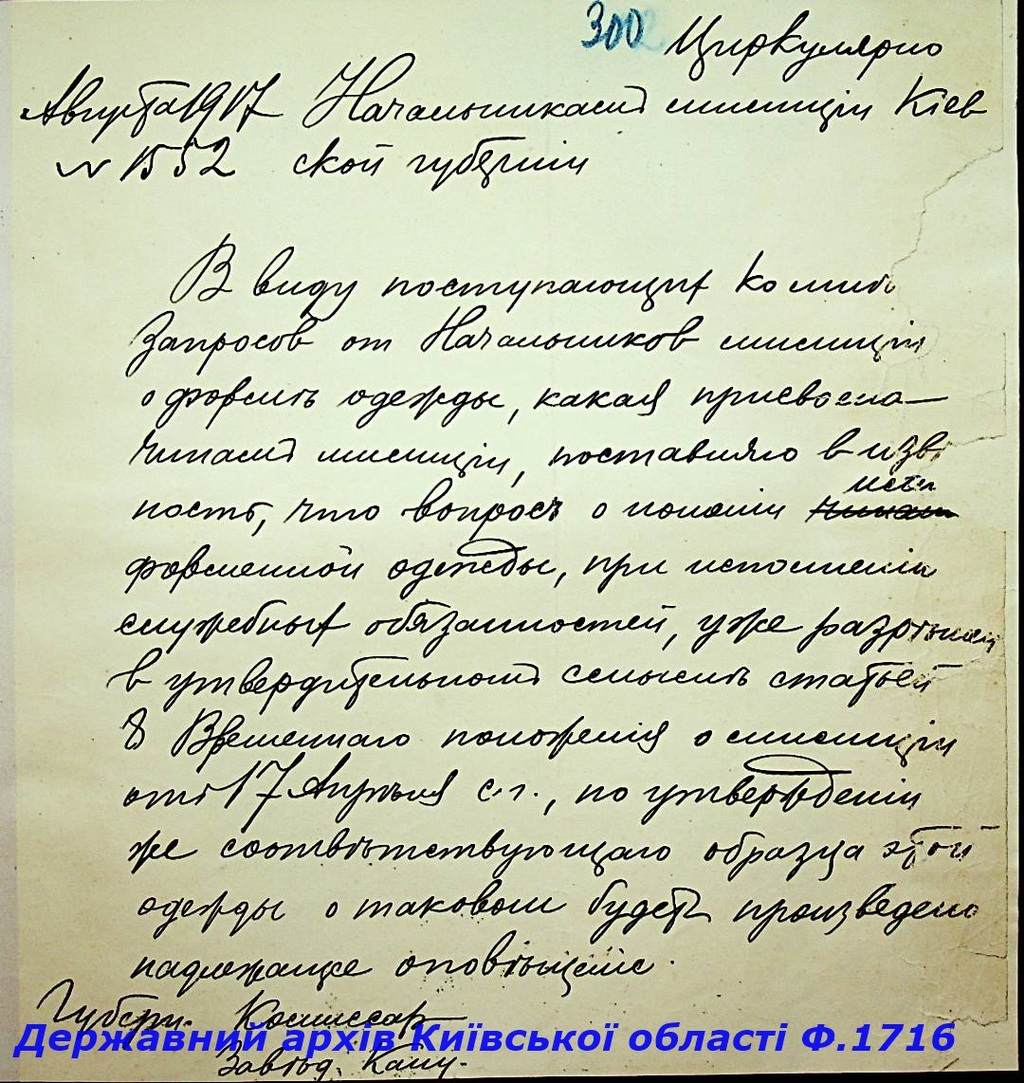 300 Циркулярно
Августа 1917 Начальникамъ милиціи Кіев
N 1552 ской губерніи
В виду поступающих ко мнѣ
запросов от Начальников милиціи
о формѣ одежды, какая присвоена
чинамъ милиціи, поставляю в извѣ
ность, что вопросъ о ношеніи
форменной одежды, при исполненіи
служебных обязанностей, уже разрѣшен
в утвердительномъ смыслѣ статьей
8 Временнаго положенія о милиціи
отъ 17 Апрѣля с.г., по утвержденіи
же соотвѣтствующаго образца этой
одежды о таковом будетъ произведено
надлежащее оповѣщеніе.
Губерн. Комиссар
Державний архів Київської області Ф.1716
Завѣд. Канц.